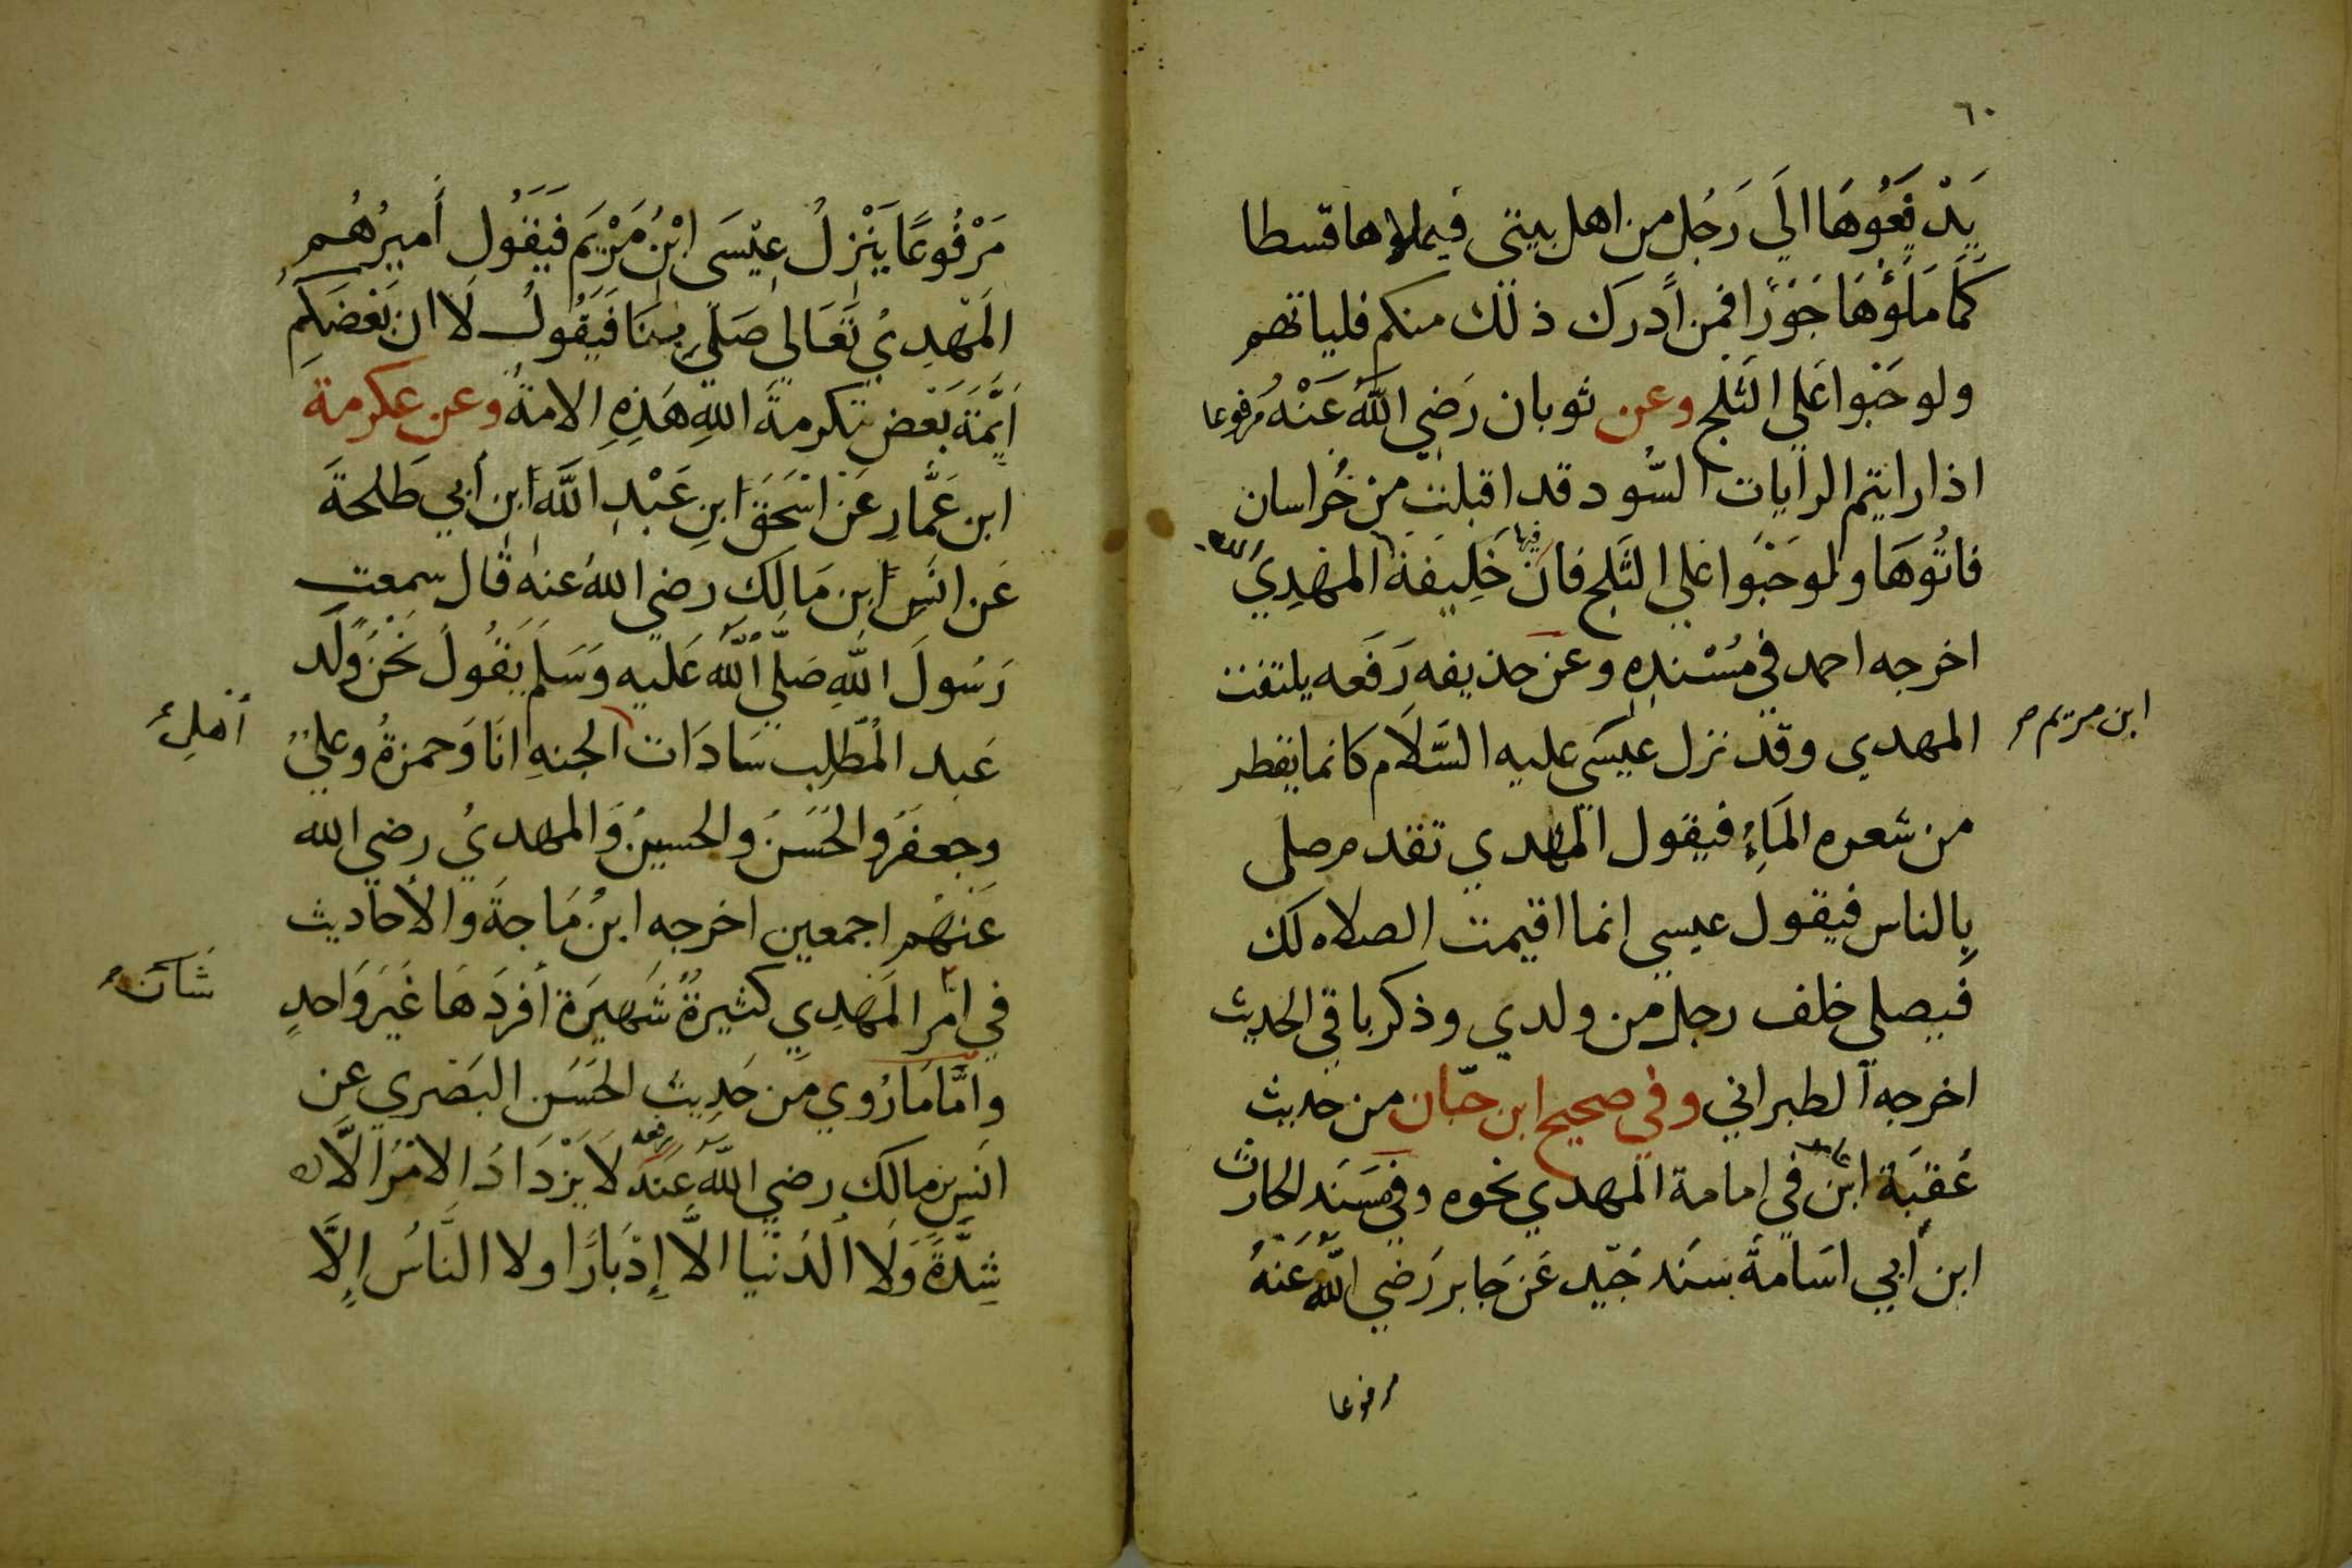 ٦٠
يدفعوها الى رجل من اهل بيتى فيملاوها قسطا
كما ملؤها جورا فمن ادرك ذلك منكم فلياتهم
ولو حبوا على الثلج وعن ثوبان رضي الله عنه مرفوعا
اذا رايتم الرايات السود قد اقبلت من خراسان
فاتوها ولو حبوا على الثلج فان فيها خليفة الله المهدي
اخرجه احمد في مسنده وعن حذيفه رفعه يلتفت
المهدى وقد نزل عيسى عليه السلام كانما يقطر
ابن مريم
من شعره الماء فيقول المهدي تقدم صلى
بالناس فيقول عيسى انما اقيمت الصلاه لك
فيصلي خلف رجل من ولدي وذكر باقي الحديث
اخرجه الطبراني وفي صحيح ابن حبان من حديث
عقبة ابن عامر في امامة المهدي نحوه وفي مسند الحارث
ابن أبي اسامة بسند جيد عن جابر رضي الله عنه
مرفوعا
مرفوعا ينزل عيسى ابن مريم فيقول أميرهم
المهدي تعالى صلي بنا فيقول لا ان بعضكم
ايمة بعض تكرمة الله هذه الامة وعن عكرمة
ابن عمار عن اسحق ابن عبد الله ابن أبي طلحة
عن انس ابن مالك رضي الله عنه قال سمعت
رسول الله صلى الله عليه وسلم يقول نحن ولد
عبد المطلب سادات الجنه انا وحمزة وعلي
أهل
وجعفر والحسن والحسين والمهدي رضي الله
عنهم اجمعين اخرجه ابن ماجة والأحاديث
في امر المهدي كثيرة شهيرة أفردها غير واحد
شان
واما ما روي من حديث الحسن البصري عن
انس بن مالك رضي الله عنه رفعه لا يزداد الامر الا
شدة ولا الدنيا الا إدبارا ولا الناس إلا